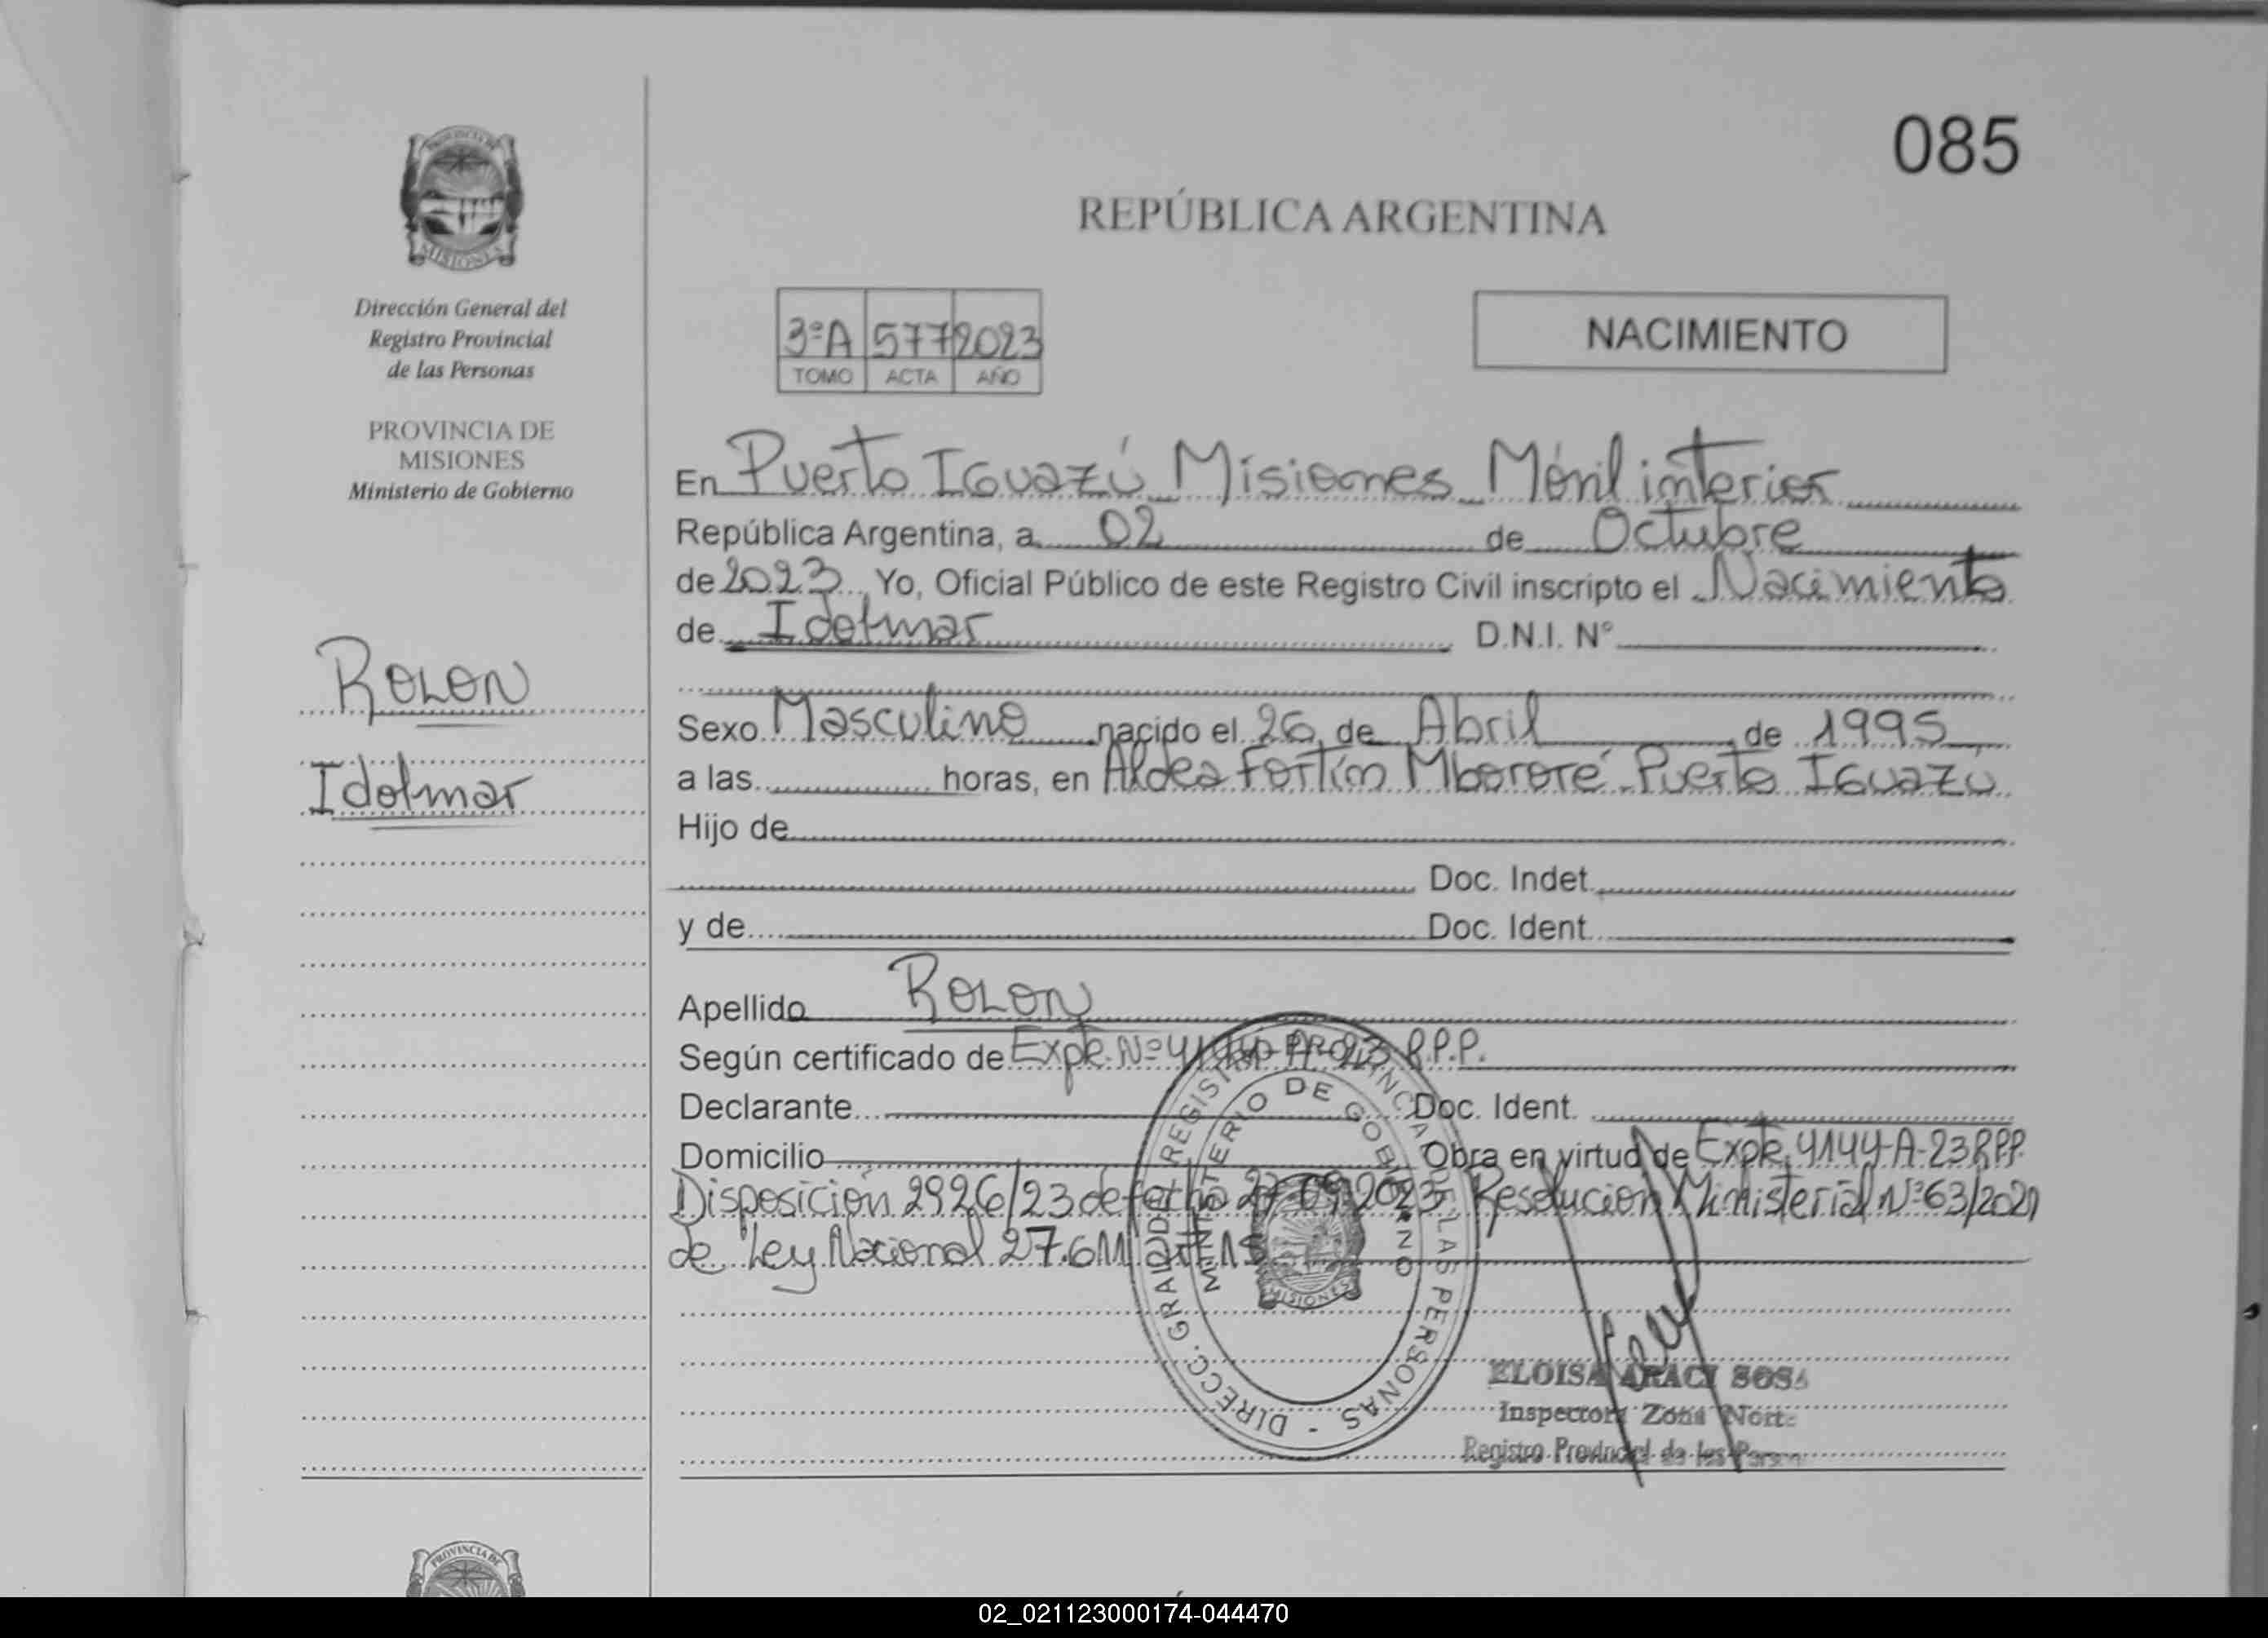 085
PROVINCIA DE
MISIONES
Dirección General del
Registro Provincial
de las Personas
PROVINCIA DE
MISIONES
Ministerio de Gobierno
ROLON
Idolmar
REPÚBLICA ARGENTINA
3ºA 577 2023
TOMO ACTA AÑO
NACIMIENTO
En Puerto Iguazú Misiones Móvil interior
República Argentina, a 02 de Octubre
de 2023, Yo, Oficial Público de este Registro Civil inscripto el Nacimiento
de Idolmar D.N.I. Nº
Sexo Masculino nacido el 26 de Abril de 1995
a las horas, en Aldea Fortín Mbororé Puerto Iguazú
Hijo de
Doc. Indet.
y de Doc. Ident.
Apellido ROLON
Según certificado de Expe. Nº 4144-A-23 R.P.P.
Declarante Doc. Ident.
Domicilio Obra en virtud de Expte 4144-A-23 RPP
Disposición 2926/23 de fecha 27/09/2023 Resolución Ministerial Nº 63/2021
de Ley Nacional 27.611
DIRECC. GRAL. DE REGISTRO PROVINCIAL DE LAS PERSONAS -
MINISTERIO DE GOBIERNO
MISIONES
ELOISA ARACI SOSA
Inspectora Zona Norte
Registro Provincial de las Person
PROVINCIA DE
02_021123000174-044470